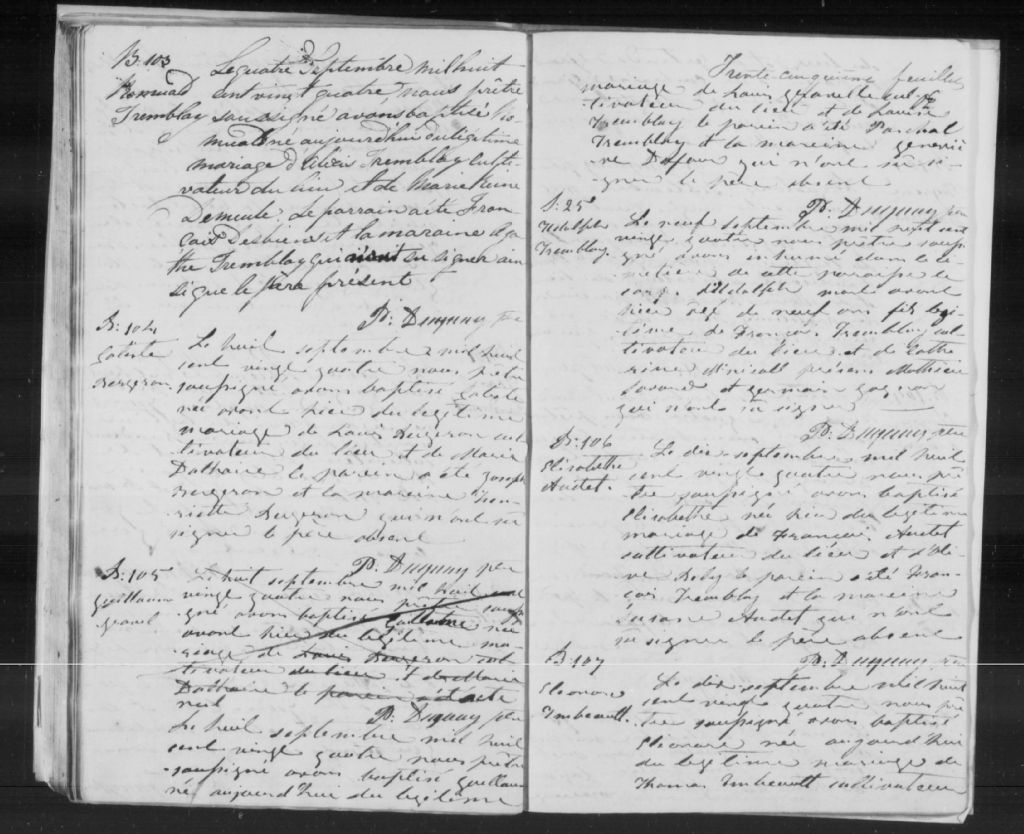 B: 103
Romuald
Tremblay
Le quatre Septembre mil huit
cent vingt quatre nous prêtre
soussigné avons baptisé Ro-
muald né aujourd'hui du légitime
mariage d'Alexis Tremblay culti-
vateur du lieu et de Marie Reine
Demeule. Le parrain a été Fran-
çois Desbiens et la maraine Aga-
the Tremblay qui n'ont su signer ain
si que le père présent
P: Duguay ptre
B: 104
Bergeron
Le huit septembre mil huit
cent vingt quatre nous prêtre
soussigné avons baptisé
née avant hier du légitime
mariage de Louis Bergeron cul
tivateur du lieu et de Marie
Dalhaire le parein a été Joseph
Bergeron et la mareine Hen-
riette Bergeron qui n'ont su
signer le père absent
P: Duguay ptre
B: 105
Guillaume
gravel
Le huit septembre mil huit cent
vingt quatre nous prêtre soussi
gné avons baptisé Guillaume née
avant hier du légitime ma-
riage de Louis Bergeron cul
tivateur du lieu et de Marie
Dalhaire le parein a été
nul
P: Duguay ptre
Le huit septembre mil huit
cent vingt quatre nous prêtre
soussigné avons baptisé Guillaume
né aujourd'hui du légitime
Trente cinquième feuillet
mariage de Louis gravelle cul
tivateur du lieu et de Louise
Tremblay le parein a été Paschal
Tremblay et la mareine geneviè
ve Dufour qui n'ont su si-
gner le père absent
P: Duguay ptre
S: 25
Adolphe
Tremblay.
Le neuf septembre mil huit cent
vingt quatre nous prêtre soussi
gné avons inhumé dans le ci-
metière de cette paroisse le
corps d'Adolphe mort avant
hier âgé de neuf ans fils légi-
time de François Tremblay cul
tivateur du lieu et de Cathe
rine présens Mathieu
Savard et germain gagnon
qui n'ont su signer
P: Duguay ptre
B: 106
Elisabethe
Audet.
Le dix septembre mil huit
cent vingt quatre nous prê
tre soussigné avons baptisé
Elisabethe née hier du légitime
mariage de François Audet
cultivateur du lieu et d'Oli-
ve le parein a été Fran-
çois Tremblay et la mareine
Susane Audet qui n'ont
su signer le père absent
P: Duguay ptre
B: 107
Eleonore
Imbeault.
Le dix septembre mil huit
cent vingt quatre nous prê
tre soussigné avons baptisé
Eleonore née aujourd'hui
du légitime mariage de
Thomas Imbeault cultivateur